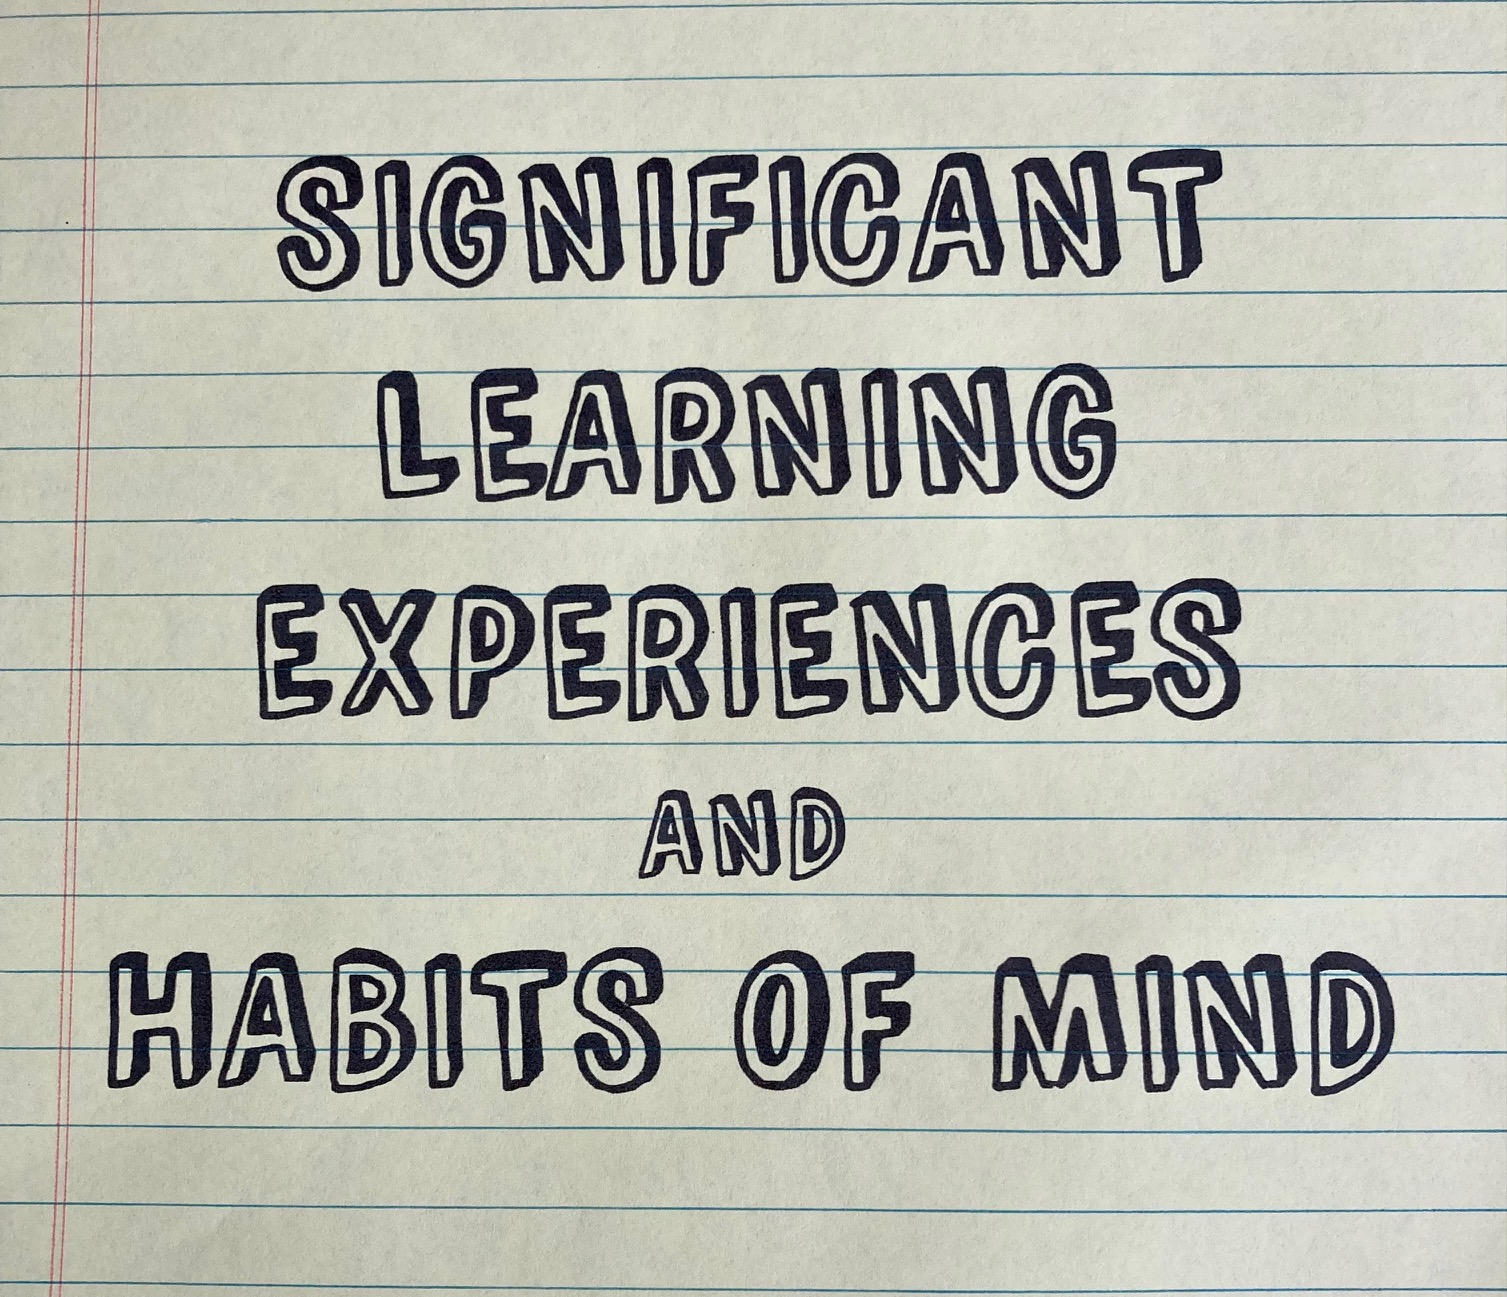 SIGNIFICANT
LEARNING
EXPERIENCES
AND
HABITS OF MIND